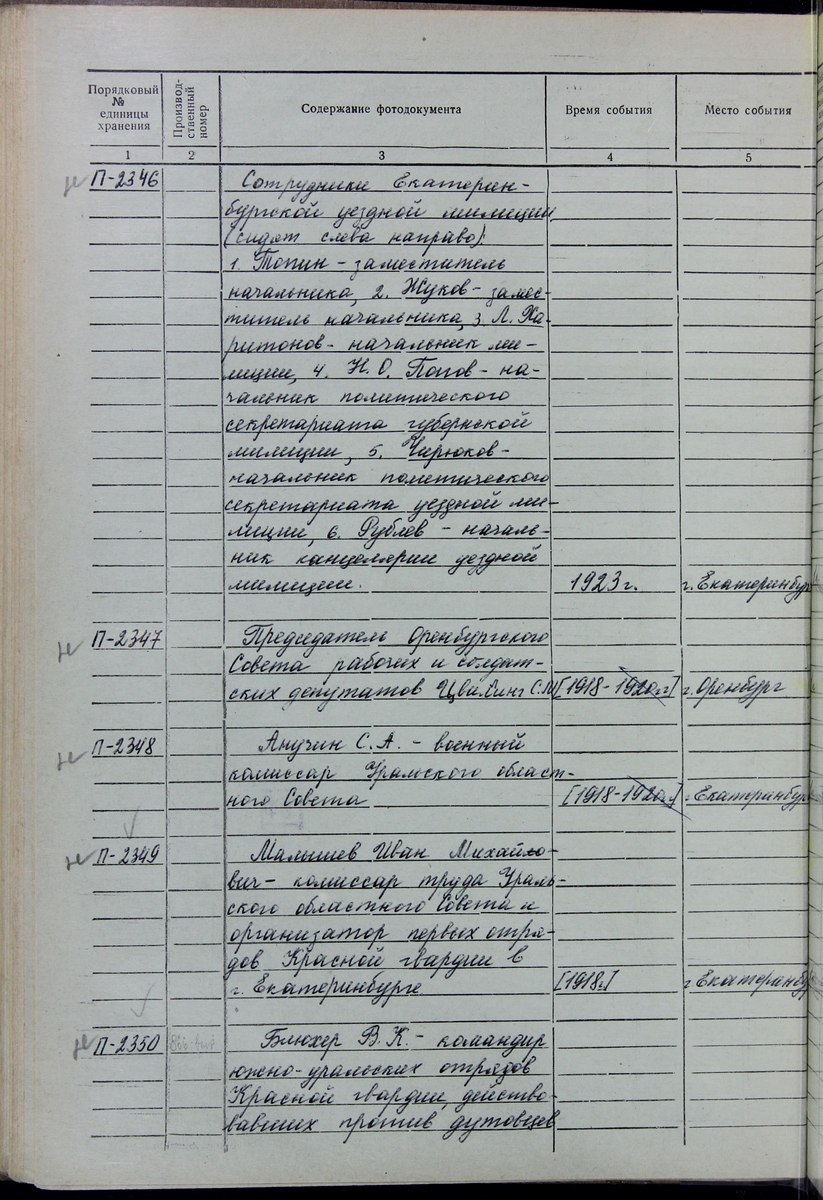 Порядковый № единицы хранения
Производ-ственный номер
Содержание фотодокумента
Время события
Место события
1 2 3 4 5
П-2346 Сотрудники Екатерин-
бургской уездной милиции
(сидят слева направо):
1. Топин - заместитель
начальника, 2. Жуков - замес-
титель начальника, 3. Л. Ха-
ритонов - начальник ми-
лиции, 4. Н. О. Попов - на-
чальник политического
секретариата губернской
милиции, 5. Чирюков -
начальник политического
секретариата уездной ми-
лиции, 6. Рублев - началь-
ник канцелярии уездной
милиции. 1923 г. г. Екатеринбург
П-2347 Председатель Оренбургского
Совета рабочих и солдат-
ских депутатов Цвилинг С.М. [1918-1920 гг] г. Оренбург
П-2348 Анучин С. А. - военный
комиссар Уральского област-
ного Совета [1918-1920 гг.] г. Екатеринбург
П-2349 Малышев Иван Михайло-
вич - комиссар труда Ураль-
ского областного Совета и
организатор первых отря-
дов Красной гвардии в
г. Екатеринбурге [1918г.] г Екатеринбу
П-2350 Блюхер В. К. - командир
южно-уральских отрядов
Красной гвардии, действо-
вавших против дутовцев